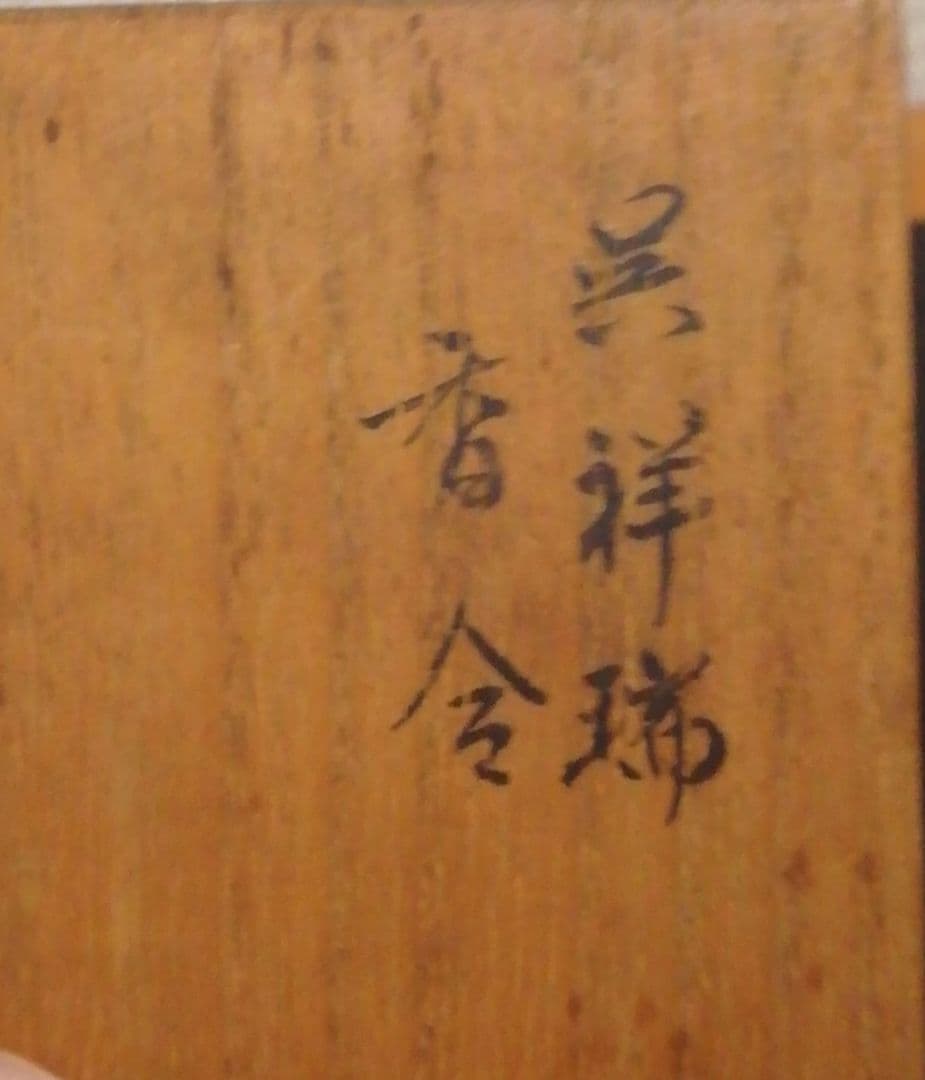 呉祥瑞
香合